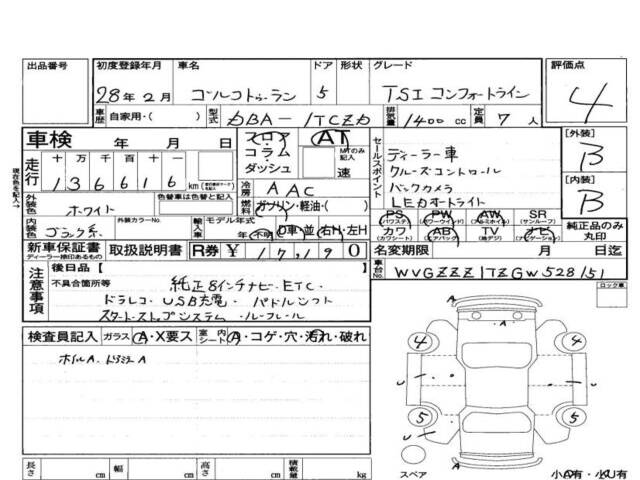 出品番号 初度登録年月 車名 ドア 形状 グレード 評価点
28年2月 ゴルフトゥーラン 5 TSI コンフォートライン 4
車歴 自家用・( ) 型式 DBA-1TCZD 排気量 1400cc 定員 7人
車検 年 月 日 フロア AT コラム・ダッシュ MTのみ記入 速
走行 十万千百十一 136616 km
冷房 AAC
燃料 ガソリン・軽油・( )
外装色 ホワイト 色替車は色替と記入
内装色 ブラック系 外装カラーNo. 輸入車 モデル年式 年(不明) D車・並 右H・左H
セールスポイント
ディーラー車
クルーズコントロール
バックカメラ
LEDオートライト
[外装] B
[内装] B
PS PW AW SR
(パワステ) (パワーウインド) (アルミホイル) (サンルーフ)
カワ AB TV ナビ
(カワシート) (エアバック) (地デジ) (ナビゲーション)
純正品のみ丸印
新車保証書 ディーラー検印あるもの 取扱説明書 R券 ¥17,190 名変期限 月 日迄
車台No. WVGZZZ1TZGW528151
現在色を記入→
注意事項
後日品[ ]
不具合箇所等 純正8インチナビ・ETC・
ドラレコ・USB充電・パドルシフト
スタートストップシステム・ルーフレール
ロック車
検査員記入 ガラス A・X要ス 室内シート A・コゲ・穴・汚れ・破れ
ホイルA、ドアミラーA
A
4 4
5 5
A
スペア 小A有・小U有
長さ cm 幅 cm 高さ cm 積載量 kg